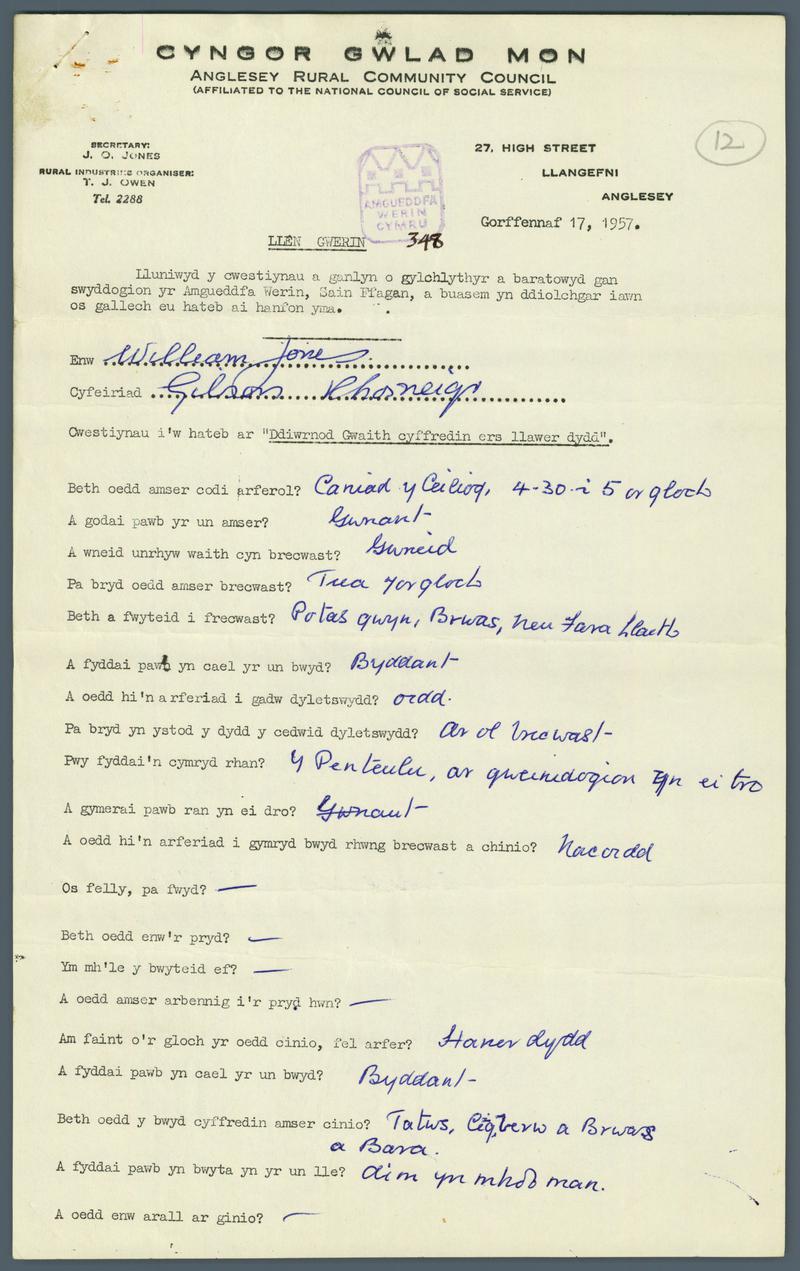 CYNGOR GWLAD MON
ANGLESEY RURAL COMMUNITY COUNCIL
(AFFILIATED TO THE NATIONAL COUNCIL OF SOCIAL SERVICE)
SECRETARY:
J. O. JONES
RURAL INDUSTRIES ORGANISER:
T. J. OWEN
Tel. 2288
27, HIGH STREET
LLANGEFNI
ANGLESEY
12
AMGUEDDFA
WERIN
CYMRU
Gorffennaf 17, 1957.
LLEN GWERIN 348
Lluniwyd y cwestiynau a ganlyn o gylchlythyr a baratowyd gan
swyddogion yr Amgueddfa Werin, Sain Ffagan, a buasem yn ddiolchgar iawn
os gallech eu hateb ai hanfon yma.
Enw William Jones.
Cyfeiriad Gibson Rhosneigr
Cwestiynau i'w hateb ar "Ddiwrnod Gwaith cyffredin ers llawer dydd".
Beth oedd amser codi arferol? Caniad y Ceiliog, 4-30 i 5 or gloch
A godai pawb yr un amser? Gwnant
A wneid unrhyw waith cyn brecwast? Gwneid
Pa bryd oedd amser brecwast? Tua 7 or gloch
Beth a fwyteid i frecwast? Potas gwyn, Brwas, neu Fara Llaeth
A fyddai pawb yn cael yr un bwyd? Byddant
A oedd hi'n arferiad i gadw dyletswydd? oedd.
Pa bryd yn ystod y dydd y cedwid dyletswydd? Ar ol brecwast
Pwy fyddai'n cymryd rhan? Y Penteulu, ar gweinidogion yn ei tro
A gymerai pawb ran yn ei dro? Gwnant
A oedd hi'n arferiad i gymryd bwyd rhwng brecwast a chinio? Nac oedd
Os felly, pa fwyd? —
Beth oedd enw'r pryd? —
Ym mh'le y bwyteid ef? —
A oedd amser arbennig i'r pryd hwn? —
Am faint o'r gloch yr oedd cinio, fel arfer? Haner dydd
A fyddai pawb yn cael yr un bwyd? Byddant
Beth oedd y bwyd cyffredin amser cinio? Tatws, Cig berw a Brwas
a Bara.
A fyddai pawb yn bwyta yn yr un lle? dim yn mhob man.
A oedd enw arall ar ginio? —